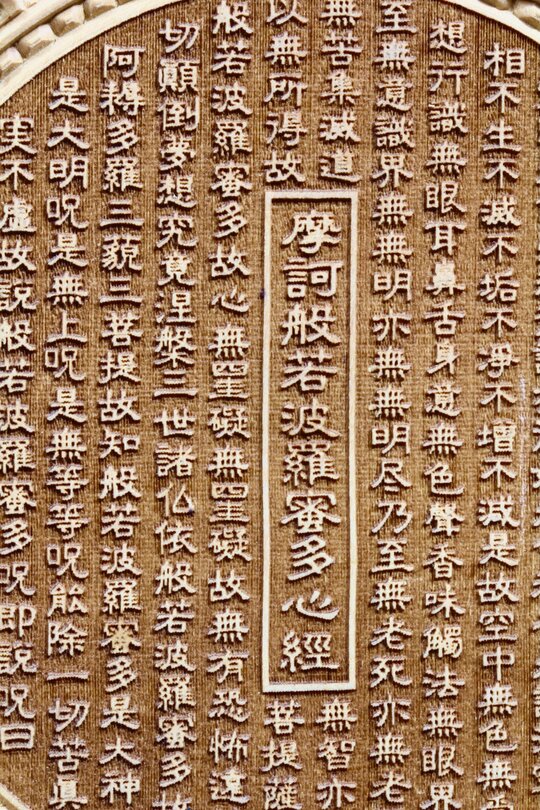 相不生不滅不垢不淨不增不減是故空中無色無
想行識無眼耳鼻舌身意無色聲香味觸法無眼界
至無意識界無無明亦無無明尽乃至無老死亦無老
無苦集滅道
無智亦
摩訶般若波羅蜜多心經
以無所得故
菩提薩
般若波羅蜜多故心無罣礙無罣礙故無有恐怖遠
切顛倒夢想究竟涅槃三世諸仏依般若波羅蜜多故
阿耨多羅三藐三菩提故知般若波羅蜜多是大神
是大明呪是無上呪是無等等呪能除一切苦真
実不虚故説般若波羅蜜多呪即説呪曰